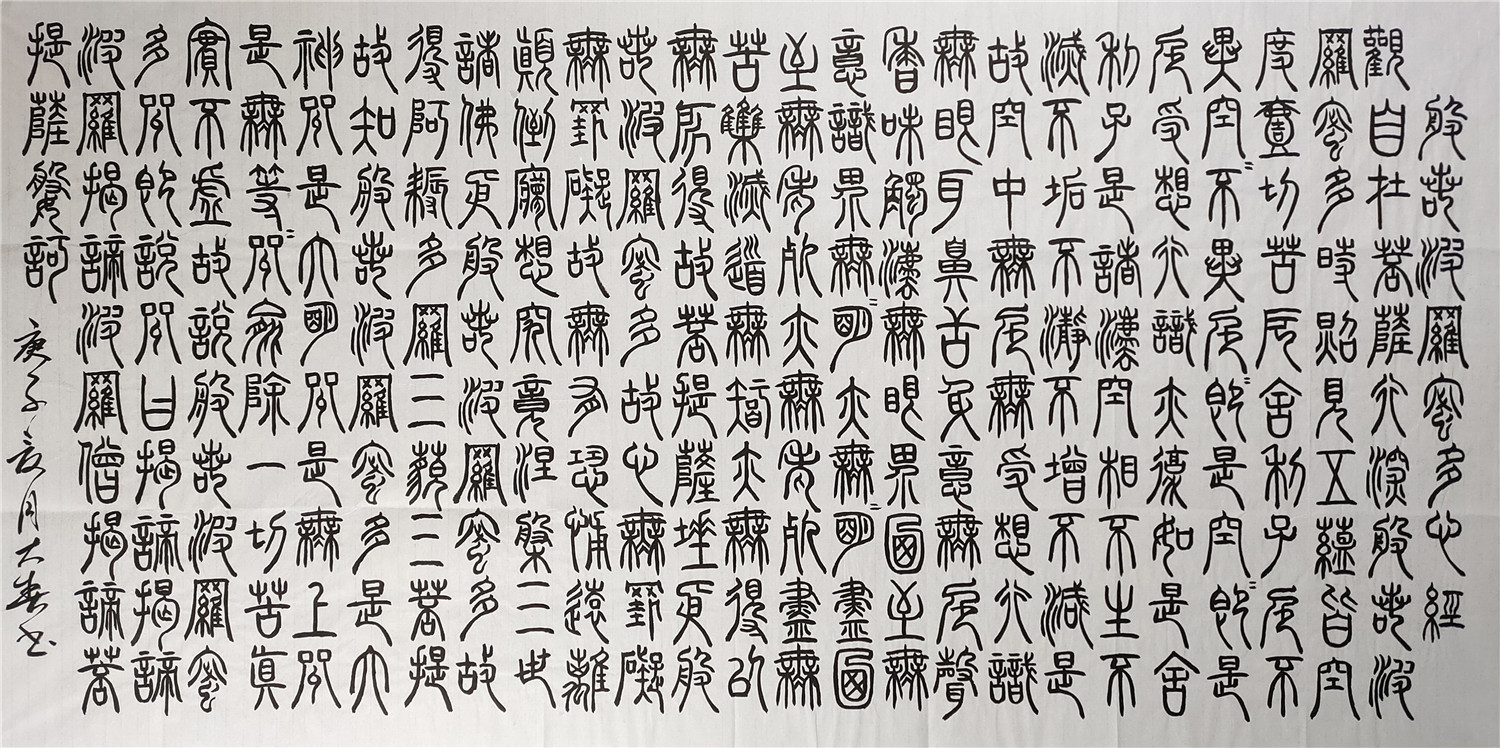 般若波羅蜜多心經
觀自在菩薩行深般若波
羅蜜多時照見五蘊皆空
度壹切苦厄舍利子色不
異空〻不異色〻即是空〻即是
色受想行識亦復如是舍
利子是諸法空相不生不
滅不垢不淨不增不減是
故空中無色無受想行識
無眼耳鼻舌身意無色聲
香味觸法無眼界乃至無
意識界無〻明亦無〻明盡乃
至無老死亦無老死盡無
苦集滅道無智亦無得以
無所得故菩提薩埵依般
若波羅蜜多故心無罣礙
無罣礙故無有恐怖遠離
顛倒夢想究竟涅槃三世
諸佛依般若波羅蜜多故
得阿耨多羅三藐三菩提
故知般若波羅蜜多是大
神咒是大明咒是無上咒
是無等〻咒能除一切苦真
實不虛故說般若波羅蜜
多咒即說咒曰揭諦揭諦
波羅揭諦波羅僧揭諦菩
提薩婆訶
庚子亥月大春书